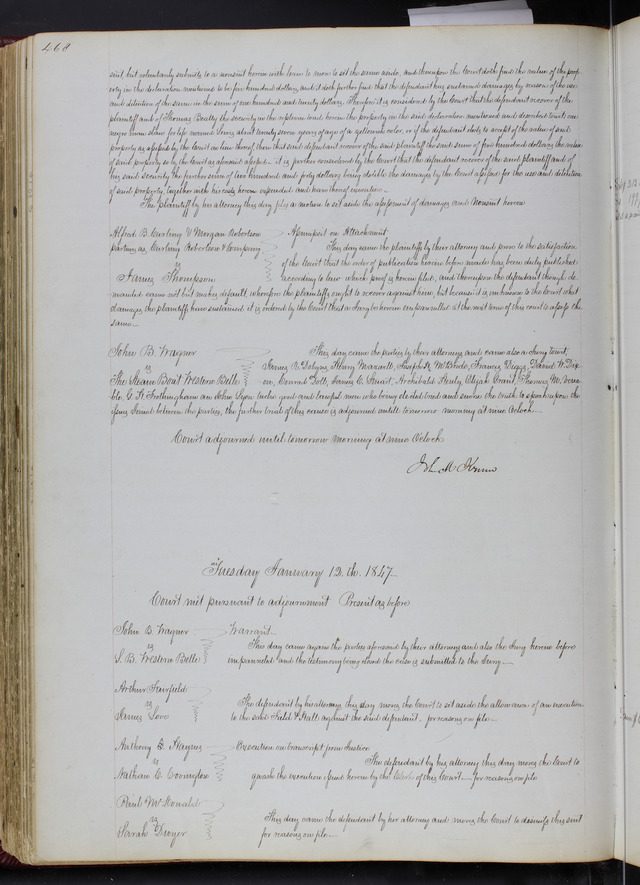 468
suit, but voluntarily submits to a nonsuit herein with leave to move to set the same aside, and thereupon the Court doth find the value of the prop-
erty in the declaration mentioned to be five hundred dollars, and it doth further find that the defendant has sustained damages by reason of the use
and detention of the same in the sum of one hundred and twenty dollars. Therefore it is considered by the Court that the defendant recover of the
plaintiff and of Thomas Beatty the security in the replevin bond herein the property in the said declaration mentioned and described to wit one
negro man slave for life named about twenty seven years of age of a yellowish color, or if the defendant elects to accept of the value of said
property as assessed by the Court in lieu thereof, then that said defendant recover of the said plaintiff the said sum of five hundred dollars the value
of said property so by the Court as aforesaid assessed. it is further considered by the Court that the defendant recover of the said plaintiff and of
his said security the further sum of two hundred and forty dollars being double the damages by the Court assessed for the use and detention
of said property, together with his costs herein expended and have thereof execution.
The plaintiff by his attorney this day files a motion to set aside the assessment of damages and Nonsuit herein
Alfred B. Curling & Morgan Robertson Assumpsit on Attachment
partners as, Curling Robertson & Company This day came the plaintiffs by their attorney and prove to the satisfaction
vs of the Court that the order of publication herein before made has been duly published
James Thompson according to law which proof is herein filed, and thereupon the defendant though de-
manded came not but makes default, wherefore the plaintiffs ought to recover against him, but because it is unknown to the Court what
damages the plaintiffs have sustained it is ordered by the Court that a Jury be herein empannelled at the next term of this court to assess the
same.
John B. Wagner This day came the parties by their attorneys and came also a Jury to wit,
vs James R. Dobyns, Henry Joseph W. McBride, Francis David W. Dix-
The Steam Boat Western Belle on, Conrad Doll, James C. Stuart, Archibald Elijah Grant, Thomas M.
G. H. Frothingham an John Tyson twelve good and lawful men who being elected tried and sworn the truth to speak upon the
issue joined between the parties, the further trial of this cause is adjourned untill tomorrow morning at nine Oclock.
Court adjourned until tomorrow morning at nine Oclock
John M Krum
Tuesday January 12.th. 1847.
Court met pursuant to adjournment Present as before
John B. Wagner Warrant.
vs This day came again the parties aforesaid by their attorneys and also the Jury herein before
S. B. Western Belle empannelled and the testimony being closed the case is submitted to the Jury.
Arthur Fairfield
vs The defendant by his attorney this day moves the Court to set aside the allowance of an execution
James Love to the said Field & Hall against the said defendant. for reasons on file.
Anthony S. Execution on transcript from Justice
vs The defendant by his attorney this day moves the Court to
Nathan C. Covington quash the execution issued herein by the Clerk of this Court for reasons on file
Paul McDonald
vs This day came the defendant by her attorney and moves the Court to dismiss this suit
Sarah Dwyer for reasons on file.